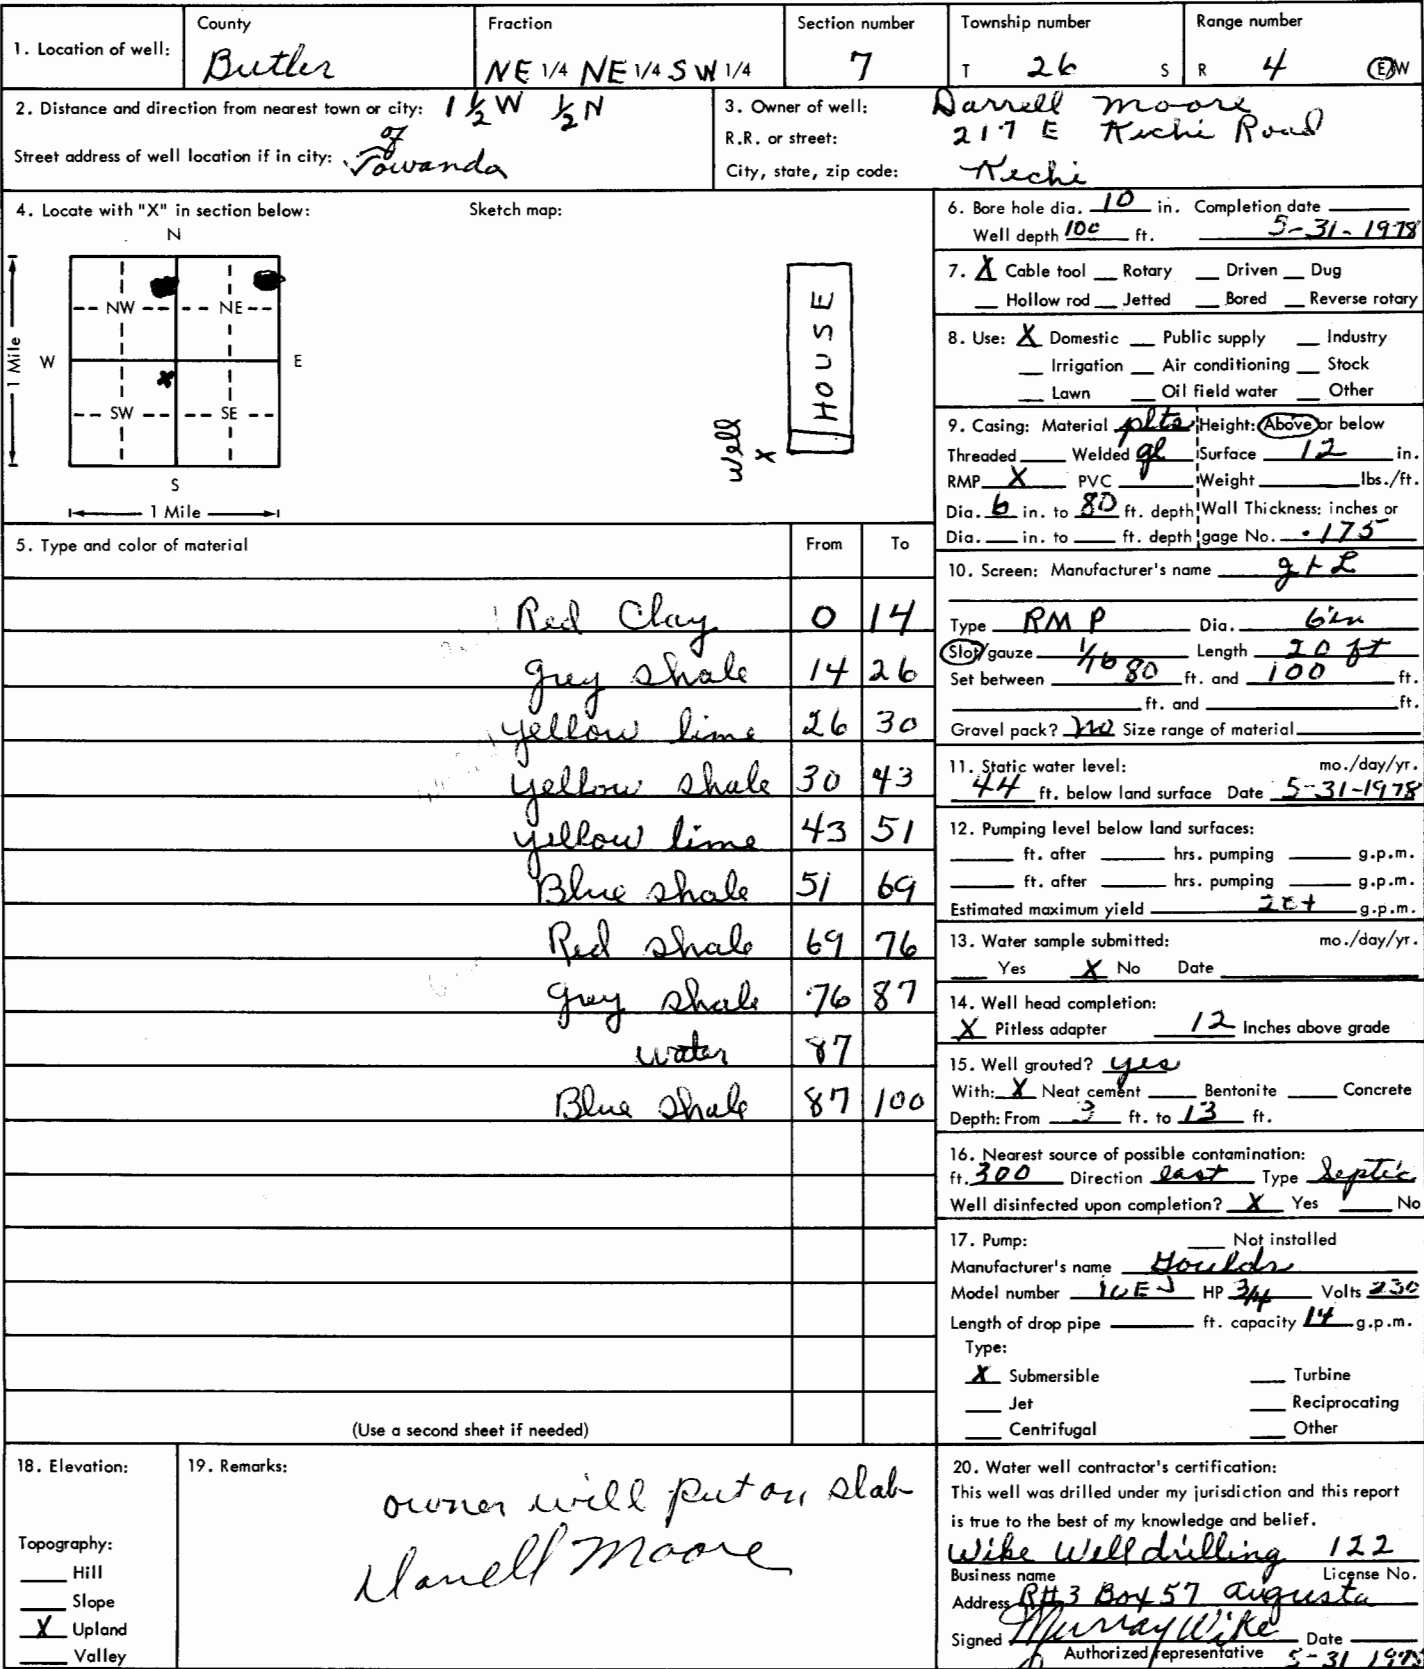 1. Location of well: County Butler Fraction NE 1/4 NE 1/4 SW 1/4 Section number 7 Township number T 26 S Range number R 4 E/W
2. Distance and direction from nearest town or city: 1 1/2 W 1/2 N
of
Street address of well location if in city: Towanda
3. Owner of well: Darrell Moore
R.R. or street: 217 E Kechi Road
City, state, zip code: Kechi
4. Locate with "X" in section below: Sketch map:
N
NW NE
W E
X
SW SE
S
1 Mile
1 Mile
HOUSE
Well
X
5. Type and color of material From To
Red Clay 0 14
grey shale 14 26
yellow lime 26 30
yellow shale 30 43
yellow lime 43 51
Blue shale 51 69
Red shale 69 76
grey shale 76 87
water 87
Blue shale 87 100
(Use a second sheet if needed)
6. Bore hole dia. 10 in. Completion date
Well depth 100 ft. 5-31-1978
7. X Cable tool Rotary Driven Dug
Hollow rod Jetted Bored Reverse rotary
8. Use: X Domestic Public supply Industry
Irrigation Air conditioning Stock
Lawn Oil field water Other
9. Casing: Material plts Height: Above or below
Threaded Welded gl Surface 12 in.
RMP X PVC Weight lbs./ft.
Dia. 6 in. to 80 ft. depth Wall Thickness: inches or
Dia. in. to ft. depth gage No. .175
10. Screen: Manufacturer's name
Type RMP Dia. 6in
Slot/gauze 1/16 Length 20 ft
Set between 80 ft. and 100 ft.
ft. and ft.
Gravel pack? no Size range of material
11. Static water level: mo./day/yr.
44 ft. below land surface Date 5-31-1978
12. Pumping level below land surfaces:
ft. after hrs. pumping g.p.m.
ft. after hrs. pumping g.p.m.
Estimated maximum yield 20+ g.p.m.
13. Water sample submitted: mo./day/yr.
Yes X No Date
14. Well head completion:
X Pitless adapter 12 Inches above grade
15. Well grouted? yes
With: X Neat cement Bentonite Concrete
Depth: From 3 ft. to 13 ft.
16. Nearest source of possible contamination:
ft. 300 Direction east Type Septic
Well disinfected upon completion? X Yes No
17. Pump: Not installed
Manufacturer's name Goulds
Model number 10EJ HP 3/4 Volts 230
Length of drop pipe ft. capacity 14 g.p.m.
Type:
X Submersible Turbine
Jet Reciprocating
Centrifugal Other
18. Elevation:
Topography:
Hill
Slope
X Upland
Valley
19. Remarks:
owner will put on slab
Darrell Moore
20. Water well contractor's certification:
This well was drilled under my jurisdiction and this report
is true to the best of my knowledge and belief.
Wike Well drilling 122
Business name License No.
Address Rt#3 Box 57 Augusta
Signed Murray Wike Date
Authorized representative 5-31 1978